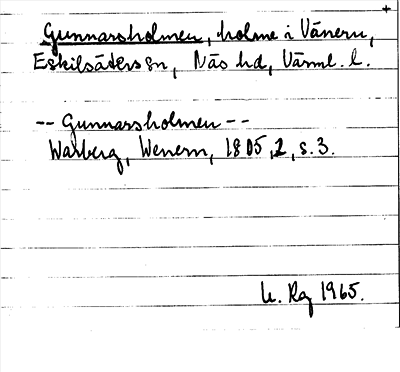 +
Gunnarsholmen, holme i Vänern,
Eskilsäters sn, Näs hd, Värml. l.
-- Gunnarsholmen --
Warberg, Wenern, 1805, 2, s. 3.
1965.